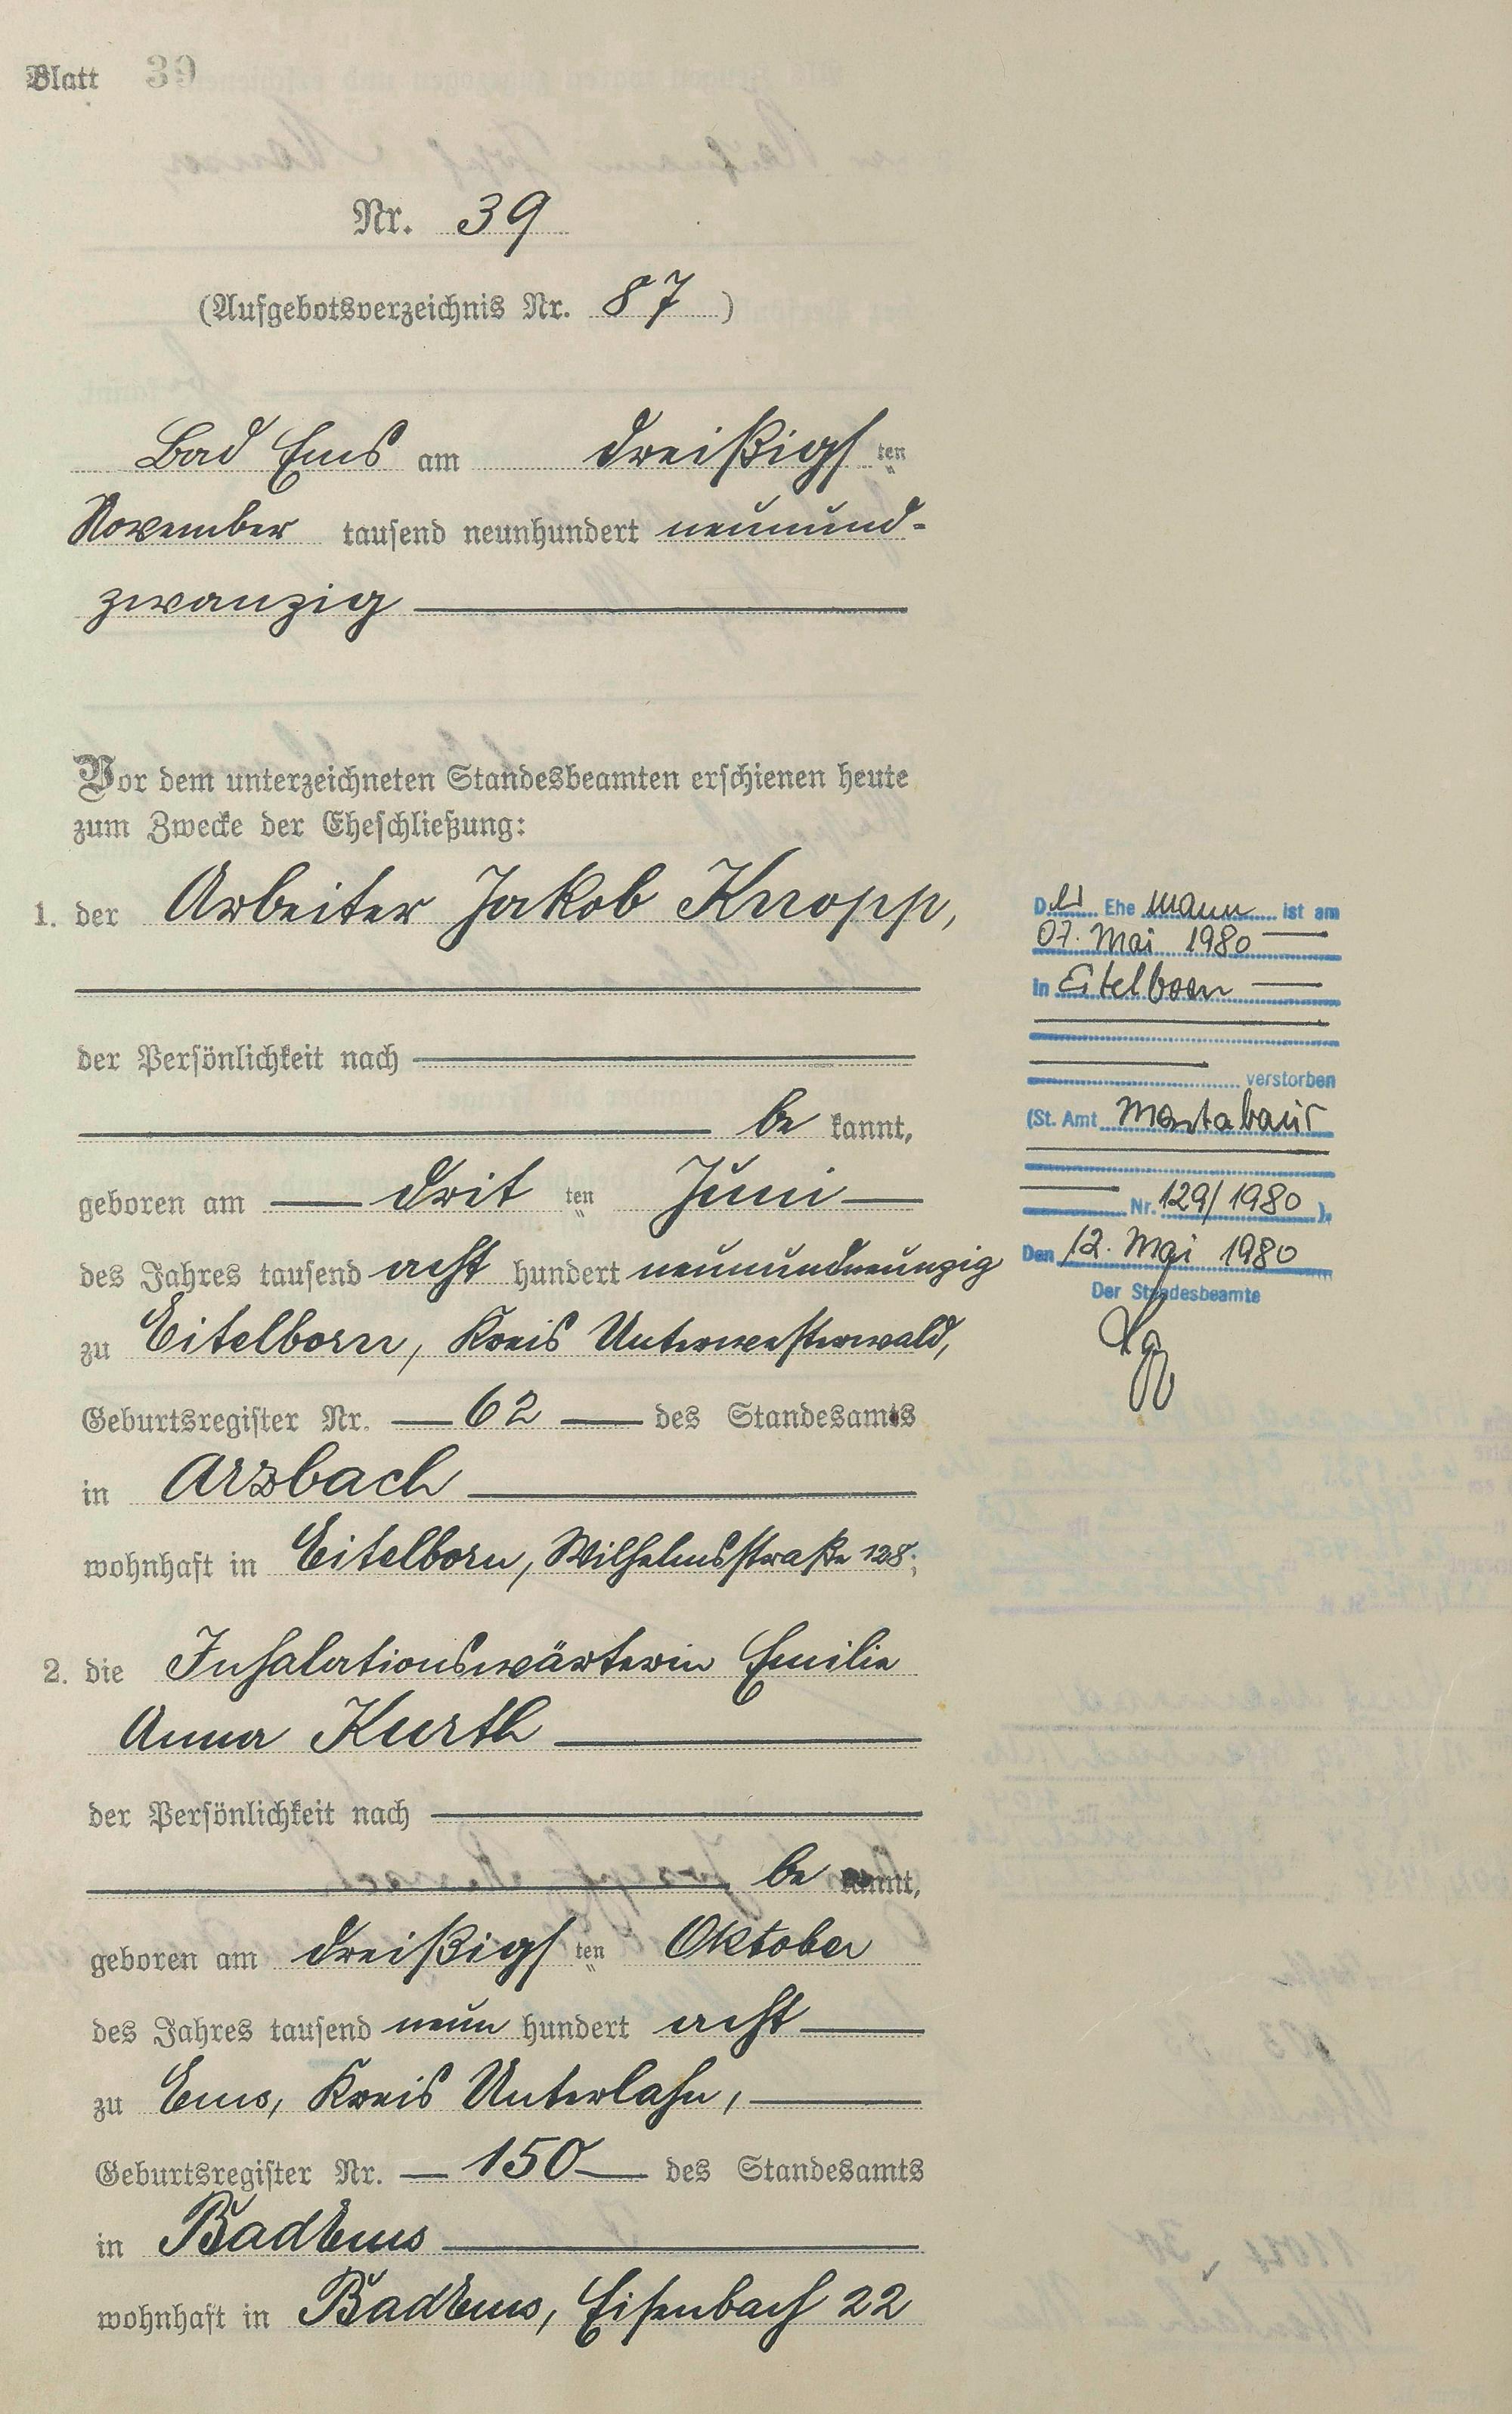 Blatt 39
Nr. 39
(Aufgebotsverzeichnis Nr. 87)
Bad Ems am dreißigsten
November tausend neunhundert neunund-
zwanzig
Vor dem unterzeichneten Standesbeamten erschienen heute
zum Zwecke der Eheschließung:
1. der Arbeiter Jakob Knopp,
der Persönlichkeit nach
be kannt,
geboren am dritten Juni
des Jahres tausend acht hundert neunundneunzig
zu Eitelborn, Kreis Unterwesterwald,
Geburtsregister Nr. 62 des Standesamts
in Arzbach
wohnhaft in Eitelborn, Wilhelmsstraße 128;
2. die Inhalationswärterin Emilie
Anna Kurth
der Persönlichkeit nach
be kannt,
geboren am dreißigsten Oktober
des Jahres tausend neun hundert acht
zu Ems, Kreis Unterlahn,
Geburtsregister Nr. 150 des Standesamts
in Bad Ems
wohnhaft in Bad Ems, Eisenbach 22
Der Ehemann ist am
07. Mai 1980
in Eitelborn
verstorben
(St. Amt Montabaur
Nr. 129/1980).
Den 12. Mai 1980
Der Standesbeamte